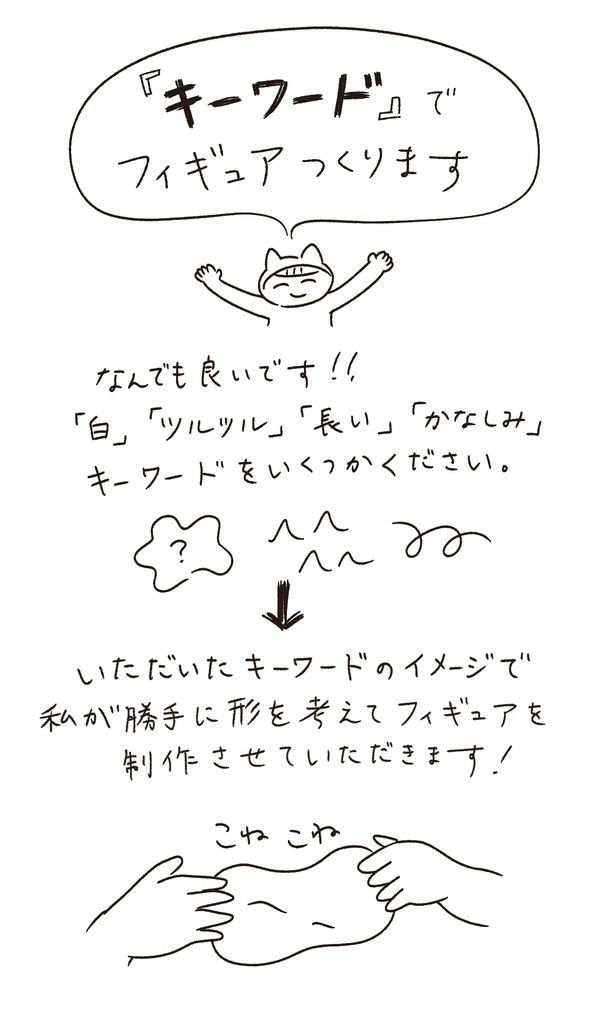 『キーワード』で
フィギュアつくります
なんでも良いです!!
「白」「ツルツル」「長い」「かなしみ」
キーワードをいくつかください。
?
いただいたキーワードのイメージで
私が勝手に形を考えてフィギュアを
制作させていただきます!
こね こね